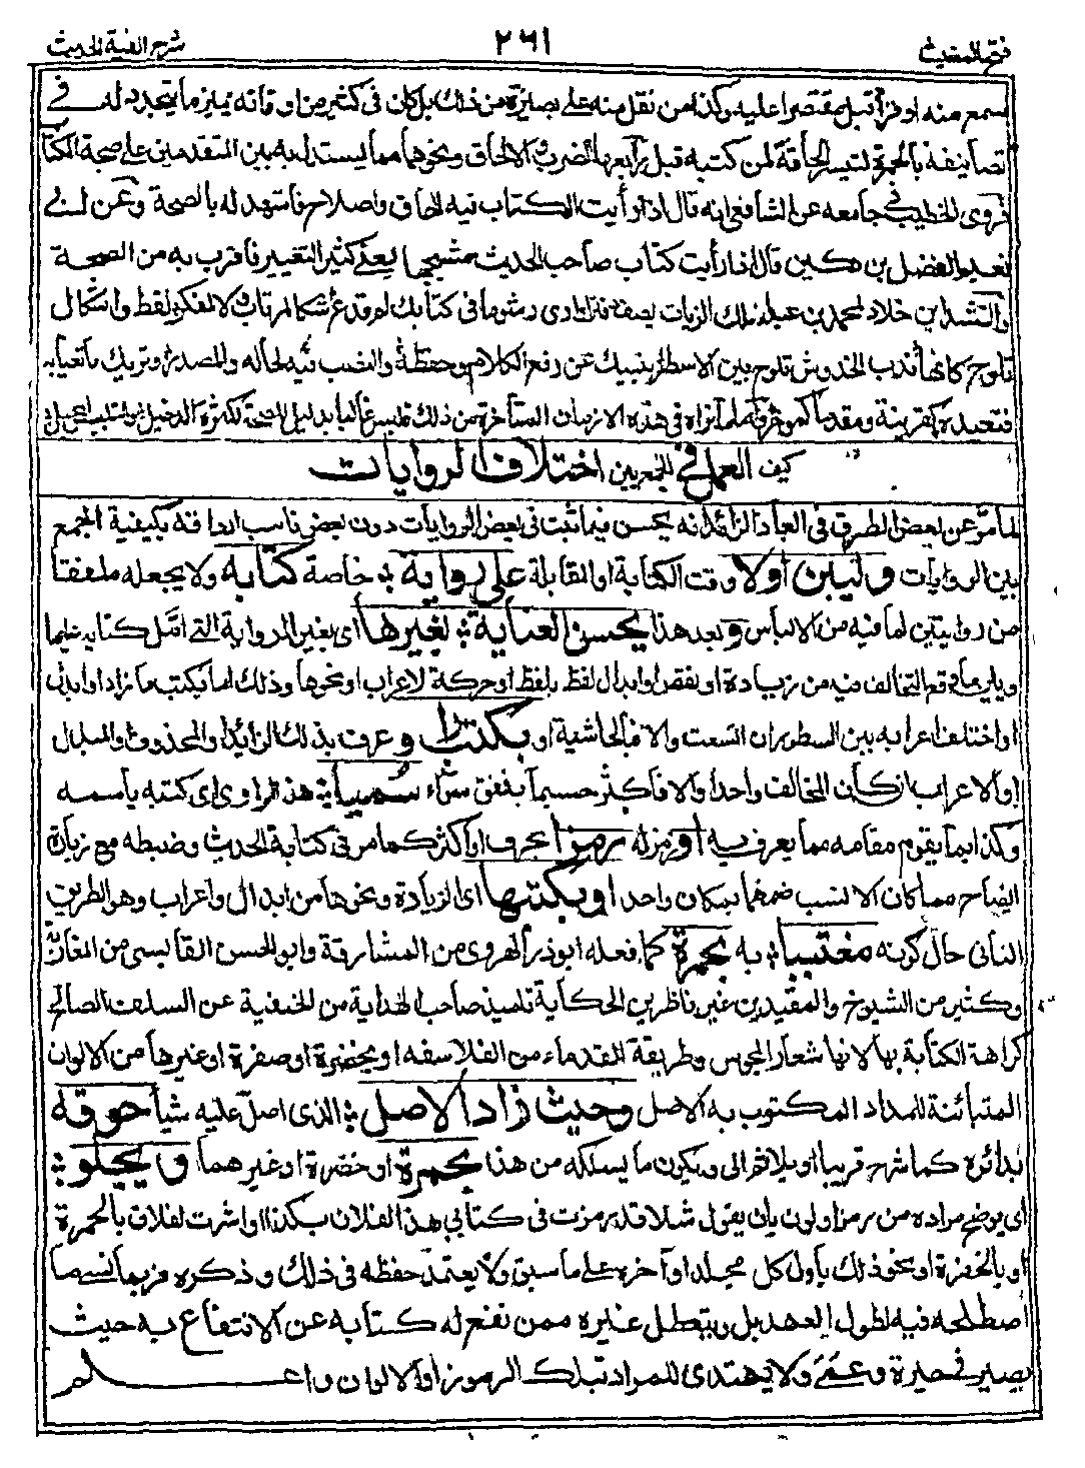 فتح المغيث ٢٦١ شرح الفية الحديث
سمع منه او قرأ قبل مقتصرا عليه وكذا من نقل منه على بصيرة من ذلك بل كان في كثير من اوقاته يميز ما يتجدد له في
تصانيفه بالحمرة لتيسر الحاقه لمن كتبه قبل ورابعها الضرب والالحاق ونحوهما مما يستدل به بين المتقدمين على صحة الكتاب
فروى الخطيب في جامعه عن الشافعي انه قال اذا رأيت الكتاب فيه الحاق واصلاح فاشهد له بالصحة وعن ابي
نعيم الفضل بن دكين قال اذا رأيت كتاب صاحب الحديث مشججا يعني كثير التغيير فاقرب به من الصحة
وانشد ابن خلاد لمحمد بن عبد الملك الزيات يصف دفترا ارى رشوما في كتابك لم تدع شكا لمرتاب ولا لمفكر نقط واشكال
تلوح كانها ندب الخدوش تلوح بين الاسطر تنبيك عن رفع الكلام وخفضه والنصب فيه لحاله والمصدر وتريك ما تعيا به
فتعيده كقرينة ومقدما كمؤخر
كيف العمل في الجمع بين اختلاف الروايات
لما مر عن بعض الطرق في العبارة الزائد انه يحسن فيما ثبت في بعض الروايات دون بعض ناسب اردافه بكيفية الجمع
بين الروايات وليبن اولا وقت الكتابة او المقابلة على رواية خاصة كتابه ولا يجعله ملفقا
من روايتين لما فيه من الالباس وبعد هذا يحسن العناية لغيرها اي بغير الرواية التي اصل كتابه عليها
ويبين ما وقع التخالف فيه من زيادة او نقص او ابدال لفظ بلفظ او حركة لاعراب او نحوها وذلك اما بكتب ما زاد او ابدل
او اختلف اعرابه بين السطور ان اتسعت والا فبالحاشية او بكتب را وعرف بذلك الزائد او المحذوف او المبدل
او الاعراب ان كان المخالف واحدا والا فاكثر حسبما يتفق سواء سميا هذا الراوي اي كتبه باسمه
وكذا بما يقوم مقامه مما يعرف به او رمز له رمزا بحرف او اكثر كما مر في كتابة الحديث وضبطه مع زيادة
ايضاح مما كان الانسب ضمهما بمكان واحد او يكتبها اي الزيادة ونحوها من ابدال واعراب وهو الطريق
الثاني حال كونه معتنيا به بحمرة كما فعله ابو ذر الهروي من المشارقة وابو الحسن القابسي من المغاربة
وكثير من الشيوخ والمقيدين غير ناظرين لحكاية تلميذ صاحب الهداية من الحنفية عن السلف الصالح
كراهة الكتابة بها لانها شعار المجوس وطريقة القدماء من الفلاسفه او بخضرة او صفرة او غيرها من الالوان
المتباينة للمداد المكتوب به الاصل وحيث زاد الاصل الذي اصل عليه شيأ حوقه
بدائرة كما شرح قريبا او بلا ثم الى ويكون ما يسلكه من هذا بحمرة او خضرة او غيرهما ويجلو
اي يوضح مراده من رمز او لون بان يقول مثلا قد رمزت في كتابي هذا لفلان بكذا او اشرت لفلان بالحمرة
او بالخضرة او نحو ذلك باول كل مجلد او آخره على ما سبق ولا يعتمد حفظه في ذلك وذكره فربما نسي ما
اصطلحه فيه لطول العهد بل ويتعطل غيره ممن يقع له كتابه عن الانتفاع به حيث
يصير في حيرة وعمى ولا يهتدي للمراد بتلك الرموز او الالوان واعلم